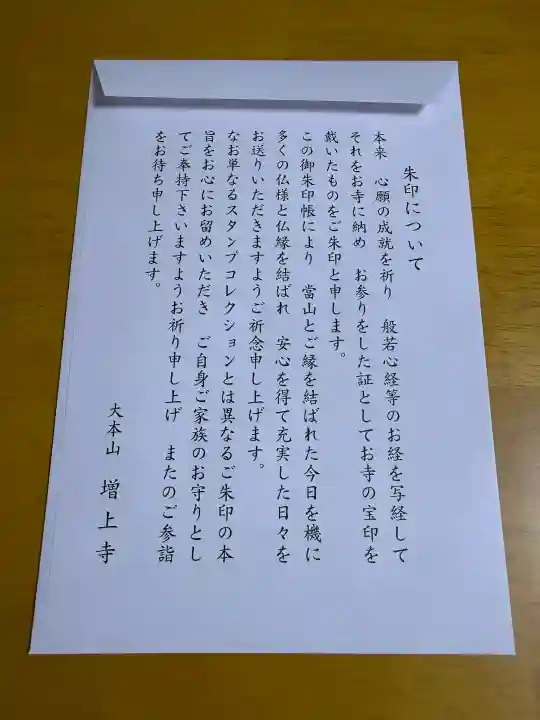 朱印について
本来　心願の成就を祈り　般若心経等のお経を写経して
それをお寺に納め　お参りをした証としてお寺の宝印を
戴いたものをご朱印と申します。
この御朱印帳により　當山とご縁を結ばれた今日を機に
多くの仏様と仏縁を結ばれ　安心を得て充実した日々を
お送りいただきますようご祈念申し上げます。
なお単なるスタンプコレクションとは異なるご朱印の本
旨をお心にお留めいただき　ご自身ご家族のお守りとし
てご奉持下さいますようお祈り申し上げ　またのご参詣
をお待ち申し上げます。
大本山　増上寺